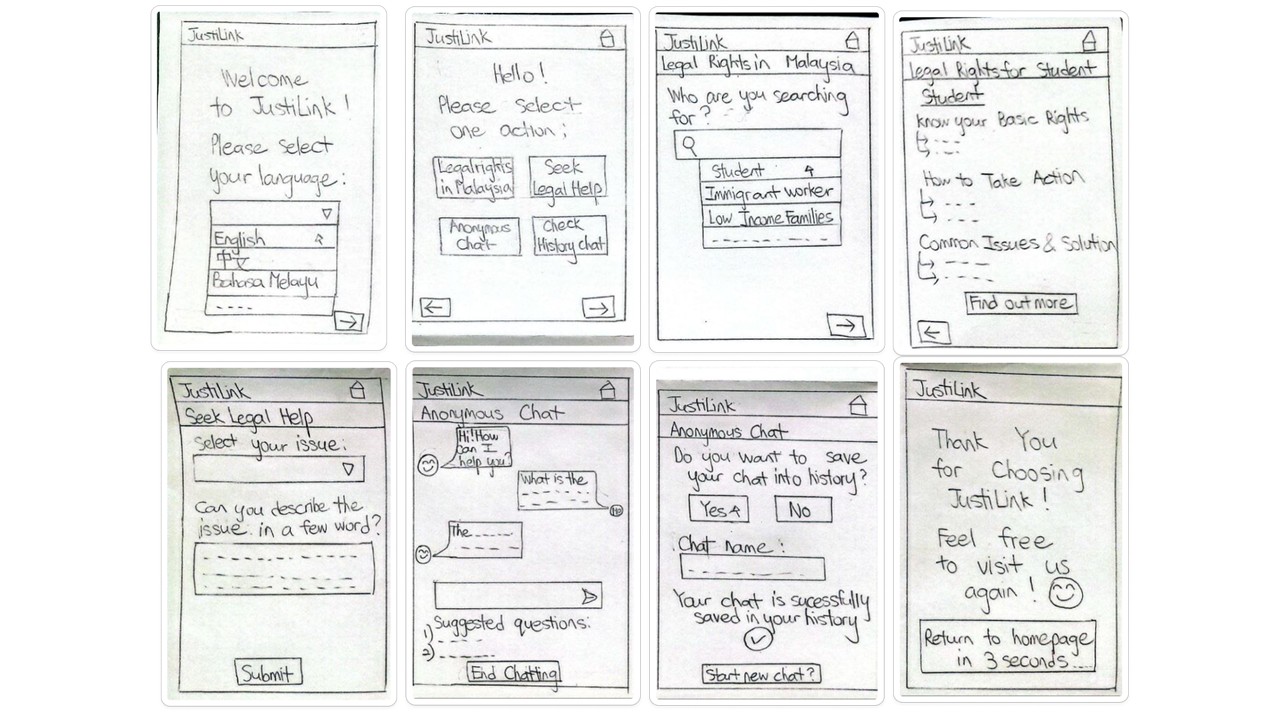 JustiLink
Welcome
to JustiLink!
Please select
your language:
English
中文
Bahasa Melayu
JustiLink
Hello!
Please select
one action;
Legal rights
in Malaysia
Seek
Legal Help
Anonymous
Chat
Check
History chat
JustiLink
Legal Rights in Malaysia
Who are you searching
for?
Student
Immigrant worker
Low Income Families
JustiLink
Legal Rights for Student
Student
know your Basic Rights
How to Take Action
Common Issues & Solution
Find out more
JustiLink
Seek Legal Help
Select your issue:
Can you describe the
issue in a few word?
Submit
JustiLink
Anonymous Chat
Hi! How
Can I
help you?
What is the
Me
The
Suggested questions:
1)
2)
End Chatting
JustiLink
Anonymous Chat
Do you want to save
your chat into history?
Yes
No
Chat name:
Your chat is sucessfully
saved in your history
Start new chat?
JustiLink
Thank You
for Choosing
JustiLink!
Feel free
to visit us
again!
Return to homepage
in 3 seconds....